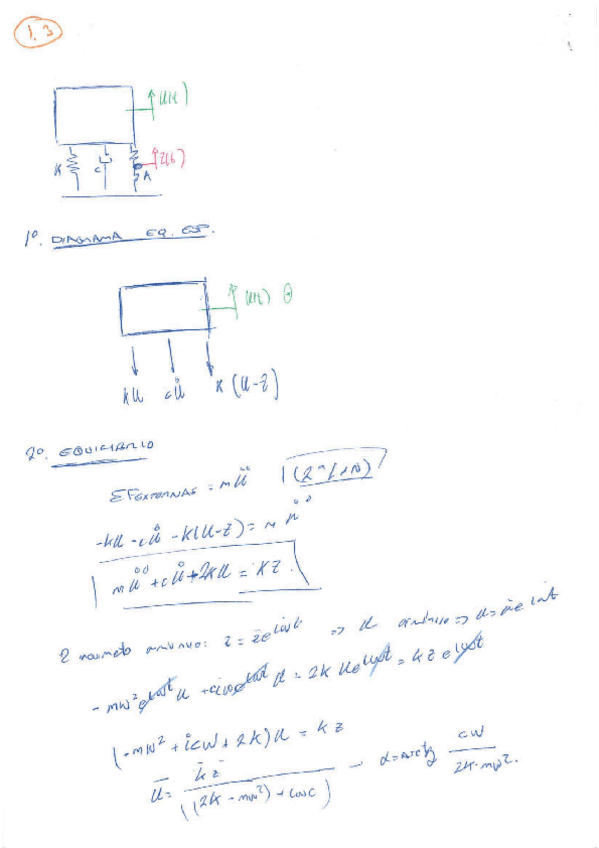 1.3
u(t)
z(t)
K
c
A
1º. DIAGRAMA EQ. ESF.
u(t) ⊕
ku cu̇ K(u-z)
2º. EQUILIBRIO
ΣFexternas = mü (2ª L N)
-ku - cu̇ - k(u-z) = mü
mü + cu̇ + 2ku = kz.
armónico: z = z̄e^iωt => u armónico => u = ūe^iωt
- mω² e^iωt u + ciωe^iωt u = 2k u e^iωt = k z e^iωt
(-mω² + icω + 2k) u = kz
ū = k z̄ / ((2k - mω²) + iωc) - α = arctg cω / 2k-mω².